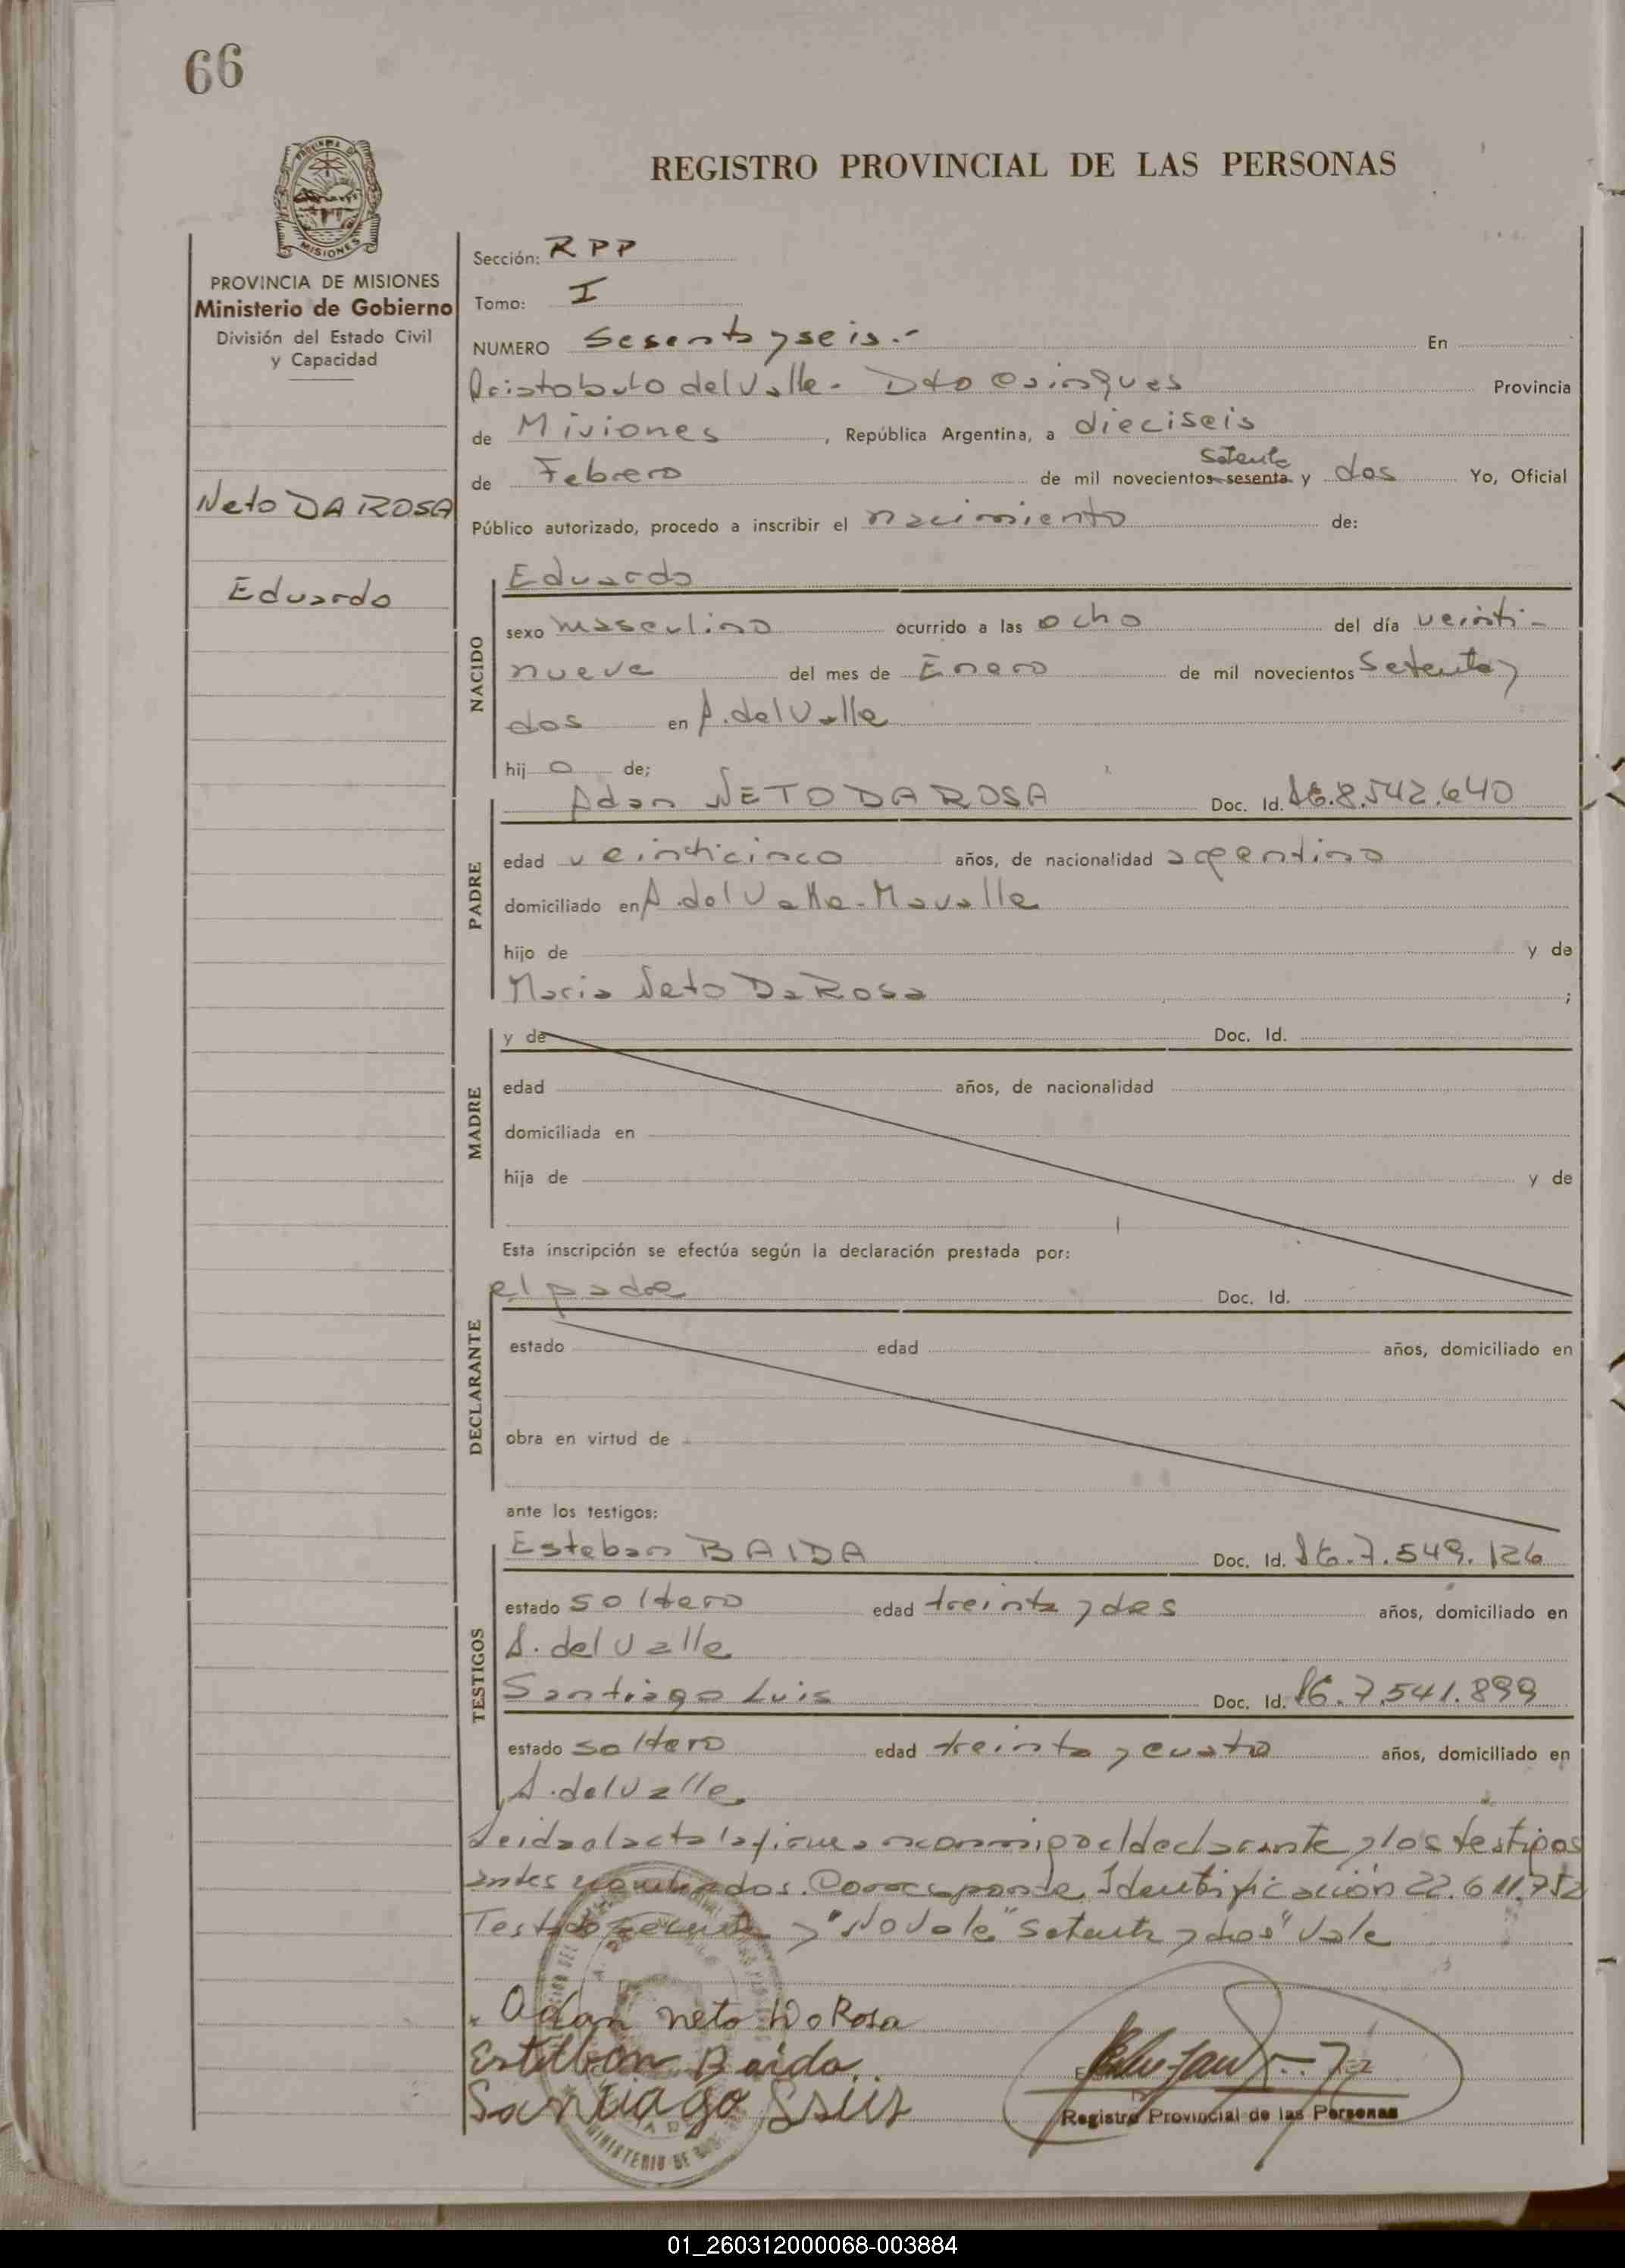 66
REGISTRO PROVINCIAL DE LAS PERSONAS
PROVINCIA DE MISIONES
Ministerio de Gobierno
División del Estado Civil
y Capacidad
Neto DA ROSA
Eduardo
Sección: RPP
Tomo: I
NUMERO Sesenta y seis.- En
Aristobulo del Valle - Dto Cainguas Provincia
de Misiones, República Argentina, a dieciseis
de Febrero de mil novecientos sesenta setenta y dos Yo, Oficial
Público autorizado, procedo a inscribir el nacimiento de:
NACIDO
Eduardo
sexo masculino ocurrido a las ocho del día veinti-
nueve del mes de Enero de mil novecientos Setenta y
dos en A. del Valle
hij o de;
PADRE
Adan NETO DA ROSA Doc. Id. 8.542.640
edad veinticinco años, de nacionalidad argentino
domiciliado en A. del Valle
hijo de y de
Maria Neto Da Rosa ;
MADRE
y de Doc. Id.
edad años, de nacionalidad
domiciliada en
hija de y de
Esta inscripción se efectúa según la declaración prestada por:
DECLARANTE
el padre Doc. Id.
estado edad años, domiciliado en
obra en virtud de
ante los testigos:
TESTIGOS
Esteban BAIDA Doc. Id. 7.549.126
estado soltero edad treinta y dos años, domiciliado en
A. del Valle
Santiago Luis Doc. Id. 7.541.899
estado soltero edad treinta y cuatro años, domiciliado en
A. del Valle
Leida el acta la firman conmigo el declarante y los testigos
antes nombrados. Corresponde Identificación 22.611.752
Testado y "No Vale" setenta y dos" Vale
Adan neto Da Rosa
Esteban Baida
Santiago
Registro Provincial de las Personas
MINISTERIO DE
01_260312000068-003884